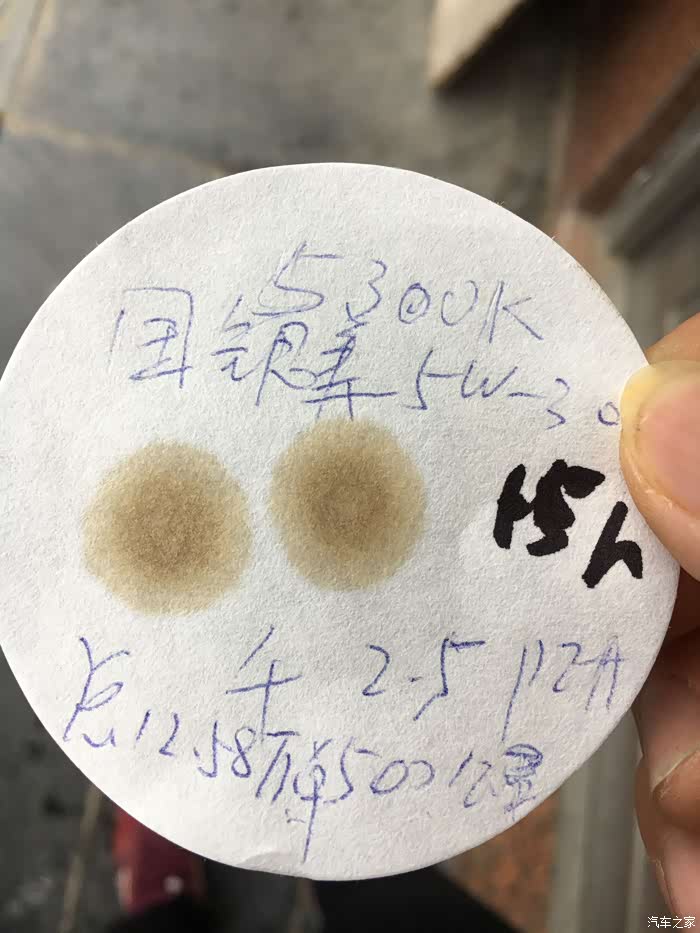 5300K
国银美5W-30
H5h
2.5
总12.58万 500公里
汽车之家